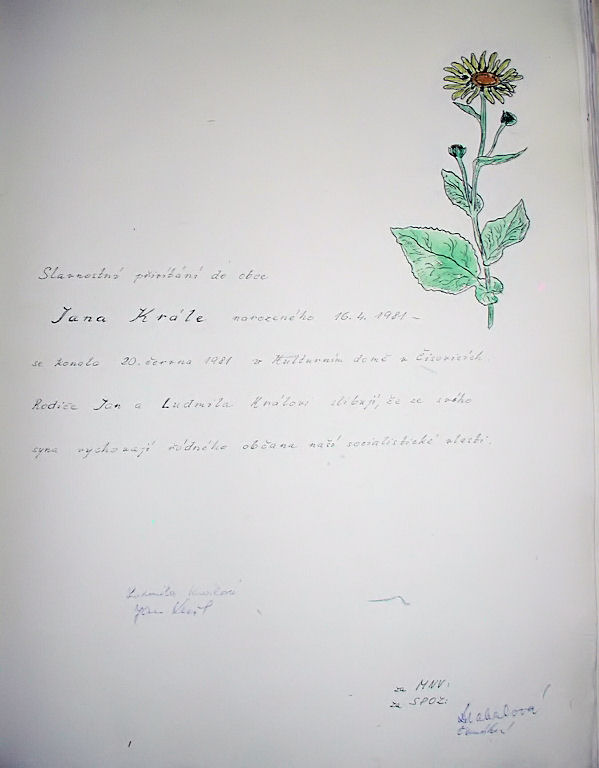 Slavnostní přivítání do obce
Jana Krále narozeného 16. 4. 1981 –
se konalo 20. června 1981 v Kulturním domě v Čisovicích.
Rodiče Jan a Ludmila Královi slibují, že ze svého
syna vychovají řádného občana naší socialistické vlasti.
Ludmila Králová
Jan Král
za MNV:
za SPOZ: